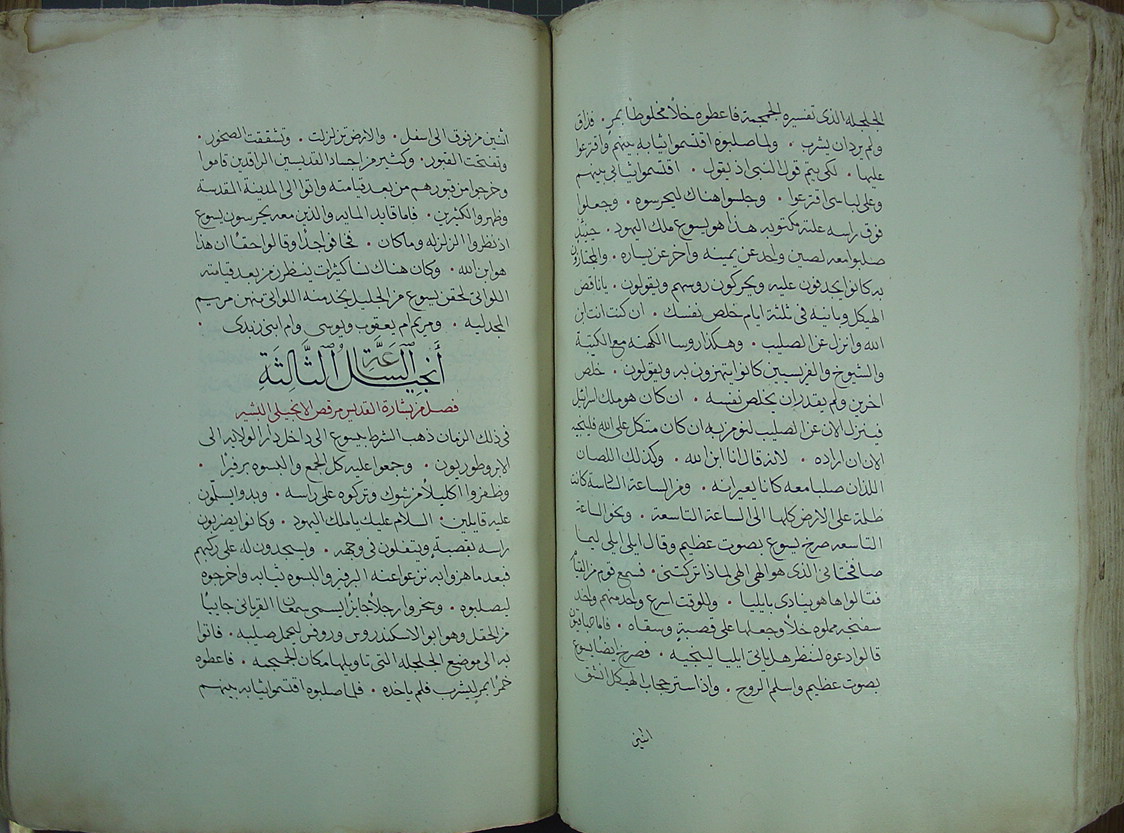 الجلجله الذى تفسيره الجمجمة فاعطوه خلاً مخلوطاً بمرٍ . فذاق
ولم يرد ان يشرب . ولما صلبوه اقتسموا ثيابه بينهم واقترعوا
عليها . لكى يتم قول النبى اذ يقول . اقتسموا ثيابى بينهم
وعلى لباسى اقترعوا . وجلسوا هناك ليحرسوه . وجعلوا
فوق راسه علته مكتوبه هذا هو يسوع ملك اليهود . حينئذٍ
صلبوا معه لصين واحد عن يمينه واخر عن يساره . والمجتازون
به كانوا يجدفون عليه ويحركون روسهم ويقولون . يا ناقض
الهيكل وبانيه فى ثلثة ايام خلص نفسك . ان كنت انت ابن
الله وانزل عن الصليب . وهكذا روسا الكهنه مع الكتبة
والشيوخ والفريسيين كانوا يتهزون به ويقولون . خلص
اخرين ولم يقدر ان يخلص نفسه . ان كان هو ملك اسرائيل
فينزل الان عن الصليب لنومن به ان كان متكل على الله فلينجيه
الان ان اراده . لانه قال انا ابن الله . وكذلك اللصان
اللذان صلبا معه كانا يعيرانه . ومن الساعة السادسة كانت
ظلمة على الارض كلها الى الساعة التاسعة . ونحو الساعة
التاسعه صرخ يسوع بصوت عظيم وقال ايلى ايلى ليما
صافختانى الذى هو الهى الهى لماذا تركتنى . فسمع قوم من القيام
فقالوا ها هو ينادى بايليا . وللوقت اسرع واحد منهم واخذ
سفنجه مملوه خلاً وجعلها على قصبةٍ وسقاه . فاما الباقون
قالوا دعوه لننظر هل ياتى ايليا لينجيه . فصرخ ايضاً يسوع
بصوت عظيم واسلم الروح . واذا ستر حجاب الهيكل انشق
اثنين
اثنين من فوق الى اسفل . والارض تزلزلت . وتشققت الصخور .
وتفتحت القبور . وكثير من اجساد القديسين الراقدين قاموا
وخرجوا من قبورهم من بعد قيامته واتوا الى المدينة المقدسة
وظهروا لكثيرين . فاما قايد المايه والذين معه يحرسون يسوع
اذ نظروا الزلزله وما كان . خافوا جداً وقالوا حقاً ان هذا
هو ابن الله . وكان هناك نسا كثيرات ينظرن من بعد قيامته
اللواتى لحقن يسوع من الجليل يخدمنه اللواتى منهن مريم
المجدليه . ومريم ام يعقوب ويوسى وام ابنى زبدى .
أنجيل السَّاعَةِ الثَّالِثَةِ
فصل من بشارة القديس مرقص الانجيلى البشير
فى ذلك الزمان ذهب الشرط بيسوع الى داخل دار الولايه الى
الابروطوريون . وجمعوا عليه كل الجمع والبسوه برفيرا .
وظفروا اكليلاً من شوك وتركوه على راسه . وبدوا يسلمون
عليه قايلين: السلام عليك يا ملك اليهود . وكانوا يضربون
راسه بقصبةٍ ويتفلون فى وجهه . ويسجدون له على ركبهم
فبعد ما هزوا به نزعوا عنه البرفير والبسوه ثيابه واخرجوه
ليصلبوه . وسخروا رجلاً جايزاً يسمى سمعان القريانى جاييا
من الحقل وهو ابو الاسكندروس وروفس ليحمل صليبه . فاتوا
به الى موضع الجلجله التى تاويلها مكان الجمجمه . فاعطوه
خمراً بمرٍ ليشرب فلم ياخذه . فلما صلبوه اقتسموا ثيابه بينهم